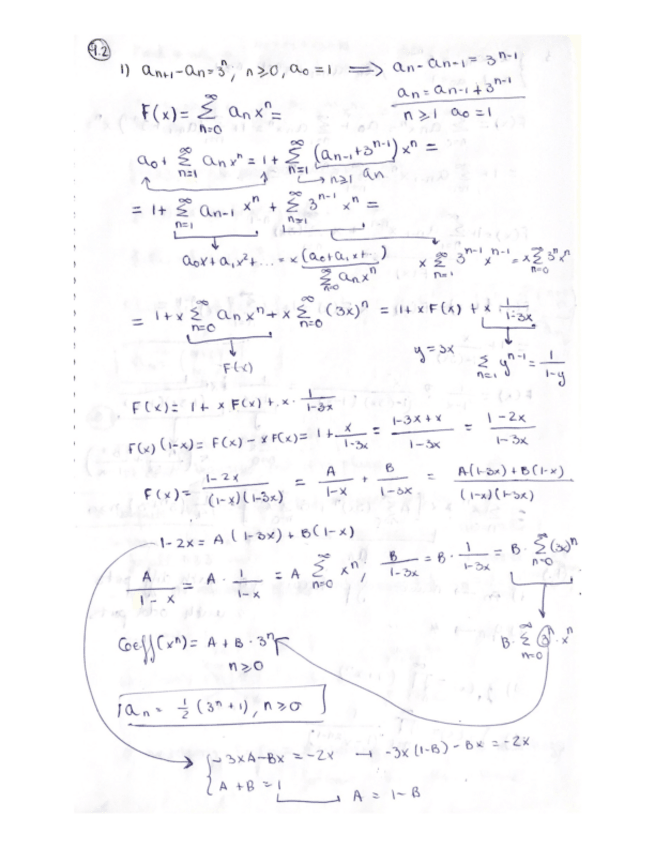 9.2
1) aₙ₊₁ - aₙ = 3ⁿ, n ≥ 0, a₀ = 1 ⟹ aₙ - aₙ₋₁ = 3ⁿ⁻¹
aₙ = aₙ₋₁ + 3ⁿ⁻¹
n ≥ 1 a₀ = 1
F(x) = ∑_{n=0}^{∞} aₙxⁿ =
a₀ + ∑_{n=1}^{∞} aₙxⁿ = 1 + ∑_{n=1}^{∞} (aₙ₋₁ + 3ⁿ⁻¹)xⁿ =
n ≥ 1 aₙ
= 1 + ∑_{n=1}^{∞} aₙ₋₁ xⁿ + ∑_{n=1}^{∞} 3ⁿ⁻¹ xⁿ =
a₀x + a₁x² + ... = x (a₀ + a₁x + ...) x ∑_{n=1}^{∞} 3ⁿ⁻¹ xⁿ⁻¹ = x ∑_{n=0}^{∞} 3ⁿxⁿ
∑_{n=0}^{∞} aₙxⁿ
= 1 + x ∑_{n=0}^{∞} aₙxⁿ + x ∑_{n=0}^{∞} (3x)ⁿ = 1 + x F(x) + x · 1/(1-3x)
F(x) y = 3x ∑_{n=1}^{∞} yⁿ⁻¹ = 1/(1-y)
F(x) = 1 + x F(x) + x · 1/(1-3x)
F(x)(1-x) = F(x) - xF(x) = 1 + x/(1-3x) = (1-3x+x)/(1-3x) = (1-2x)/(1-3x)
F(x) = (1-2x)/((1-x)(1-3x)) = A/(1-x) + B/(1-3x) = (A(1-3x) + B(1-x))/((1-x)(1-3x))
1-2x = A · (1-3x) + B(1-x)
A/(1-x) = A · 1/(1-x) = A ∑_{n=0}^{∞} xⁿ; B/(1-3x) = B · 1/(1-3x) = B · ∑_{n=0}^{∞} (3x)ⁿ
Coeff(xⁿ) = A + B · 3ⁿ B · ∑_{n=0}^{∞} 3ⁿ · xⁿ
n ≥ 0
aₙ = ½ (3ⁿ + 1), n ≥ 0
{ -3xA - Bx = -2x → -3x(1-B) - Bx = -2x
A + B = 1 A = 1 - B